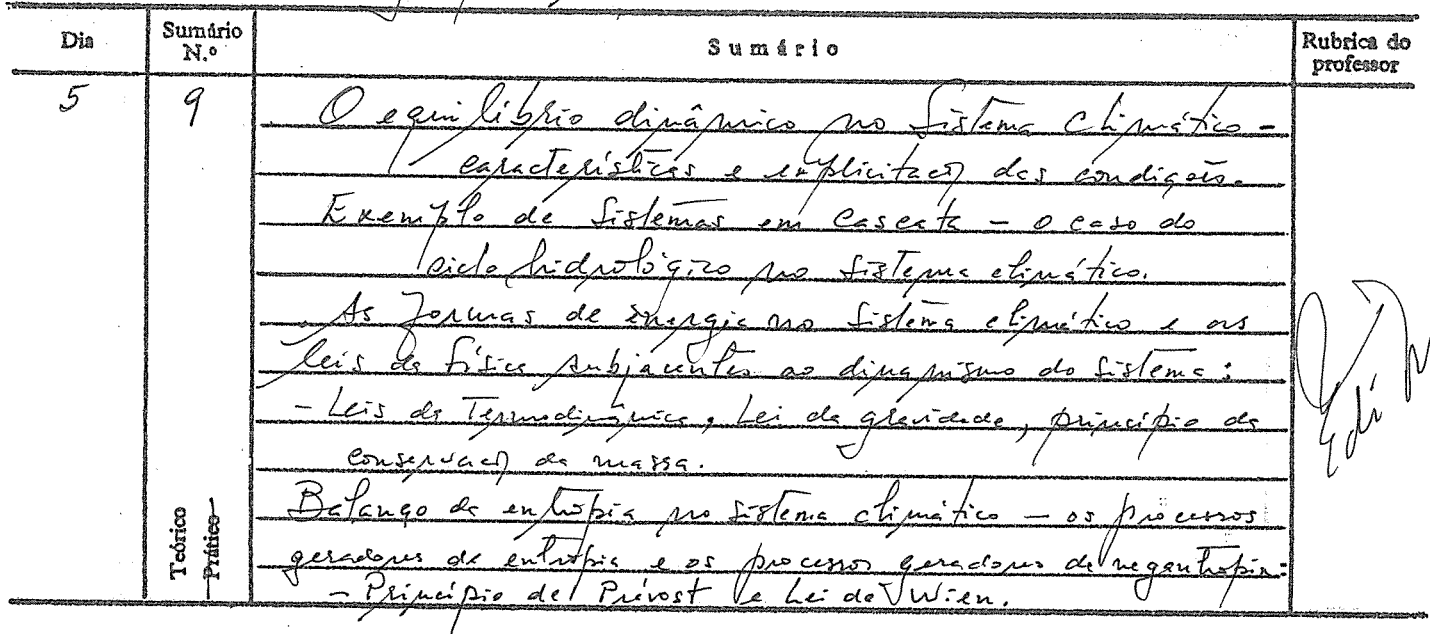 Dia Sumário N.º Sumário Rubrica do professor
5 9 O equilíbrio dinâmico no sistema climático -
características e explicitação das condições.
Exemplo de sistemas em cascata - o caso do
ciclo hidrológico no sistema climático.
As formas de energia no sistema climático e as
leis da física subjacentes ao dinamismo do sistema:
- Leis da Termodinâmica, Lei da gravidade, princípio da
conservação da massa.
Balanço da entropia no sistema climático - os processos
geradores de entropia e os processos geradores de negentropia:
- Princípio de Prévost e Lei de Wien.
Teórico
Prático